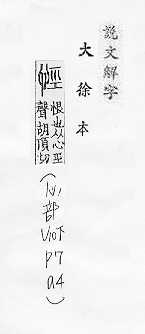 說文解字
大徐本
恨也从心巠
聲胡頂切
(心部V10下P7a4)